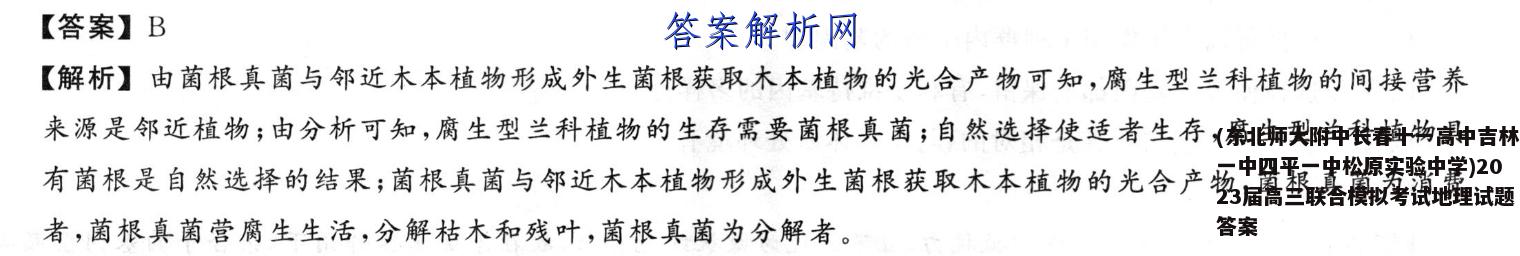 【答案】B
答案解析网
【解析】由菌根真菌与邻近木本植物形成外生菌根获取木本植物的光合产物可知,腐生型兰科植物的间接营养
来源是邻近植物;由分析可知,腐生型兰科植物的生存需要菌根真菌;自然选择使适者生存,腐生型兰科植物具
有菌根是自然选择的结果;菌根真菌与邻近木本植物形成外生菌根获取木本植物的光合产物,菌根真菌为消费
者,菌根真菌营腐生生活,分解枯木和残叶,菌根真菌为分解者。
(东北师大附中长春十一高中吉林
一中四平一中松原实验中学)20
23届高三联合模拟考试地理试题
答案